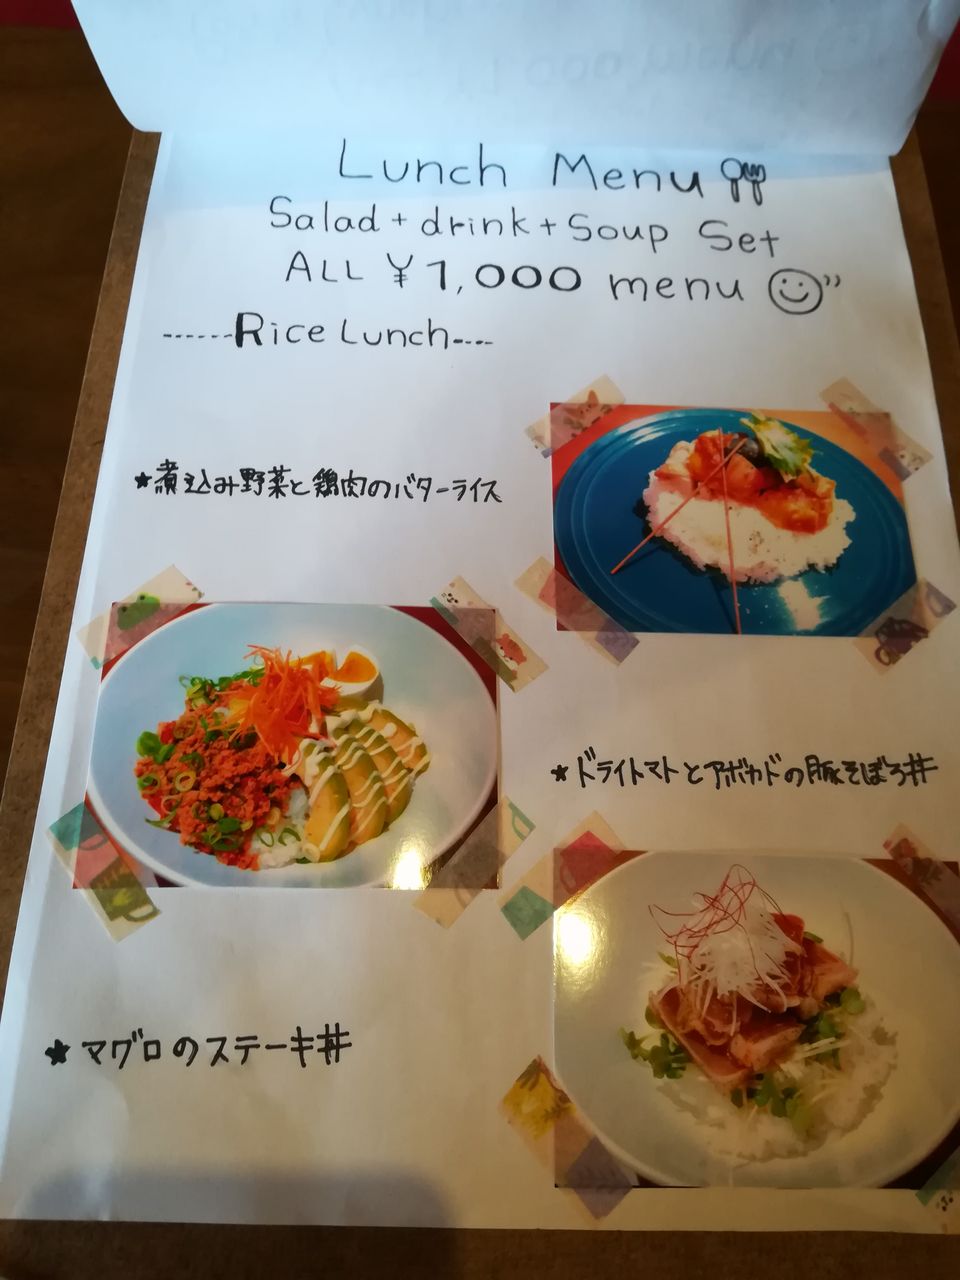 Lunch Menu
Salad + drink + Soup Set
ALL ¥1,000 menu
------Rice Lunch----
★煮込み野菜と鶏肉のバターライス
★ドライトマトとアボカドの豚そぼろ丼
★マグロのステーキ丼